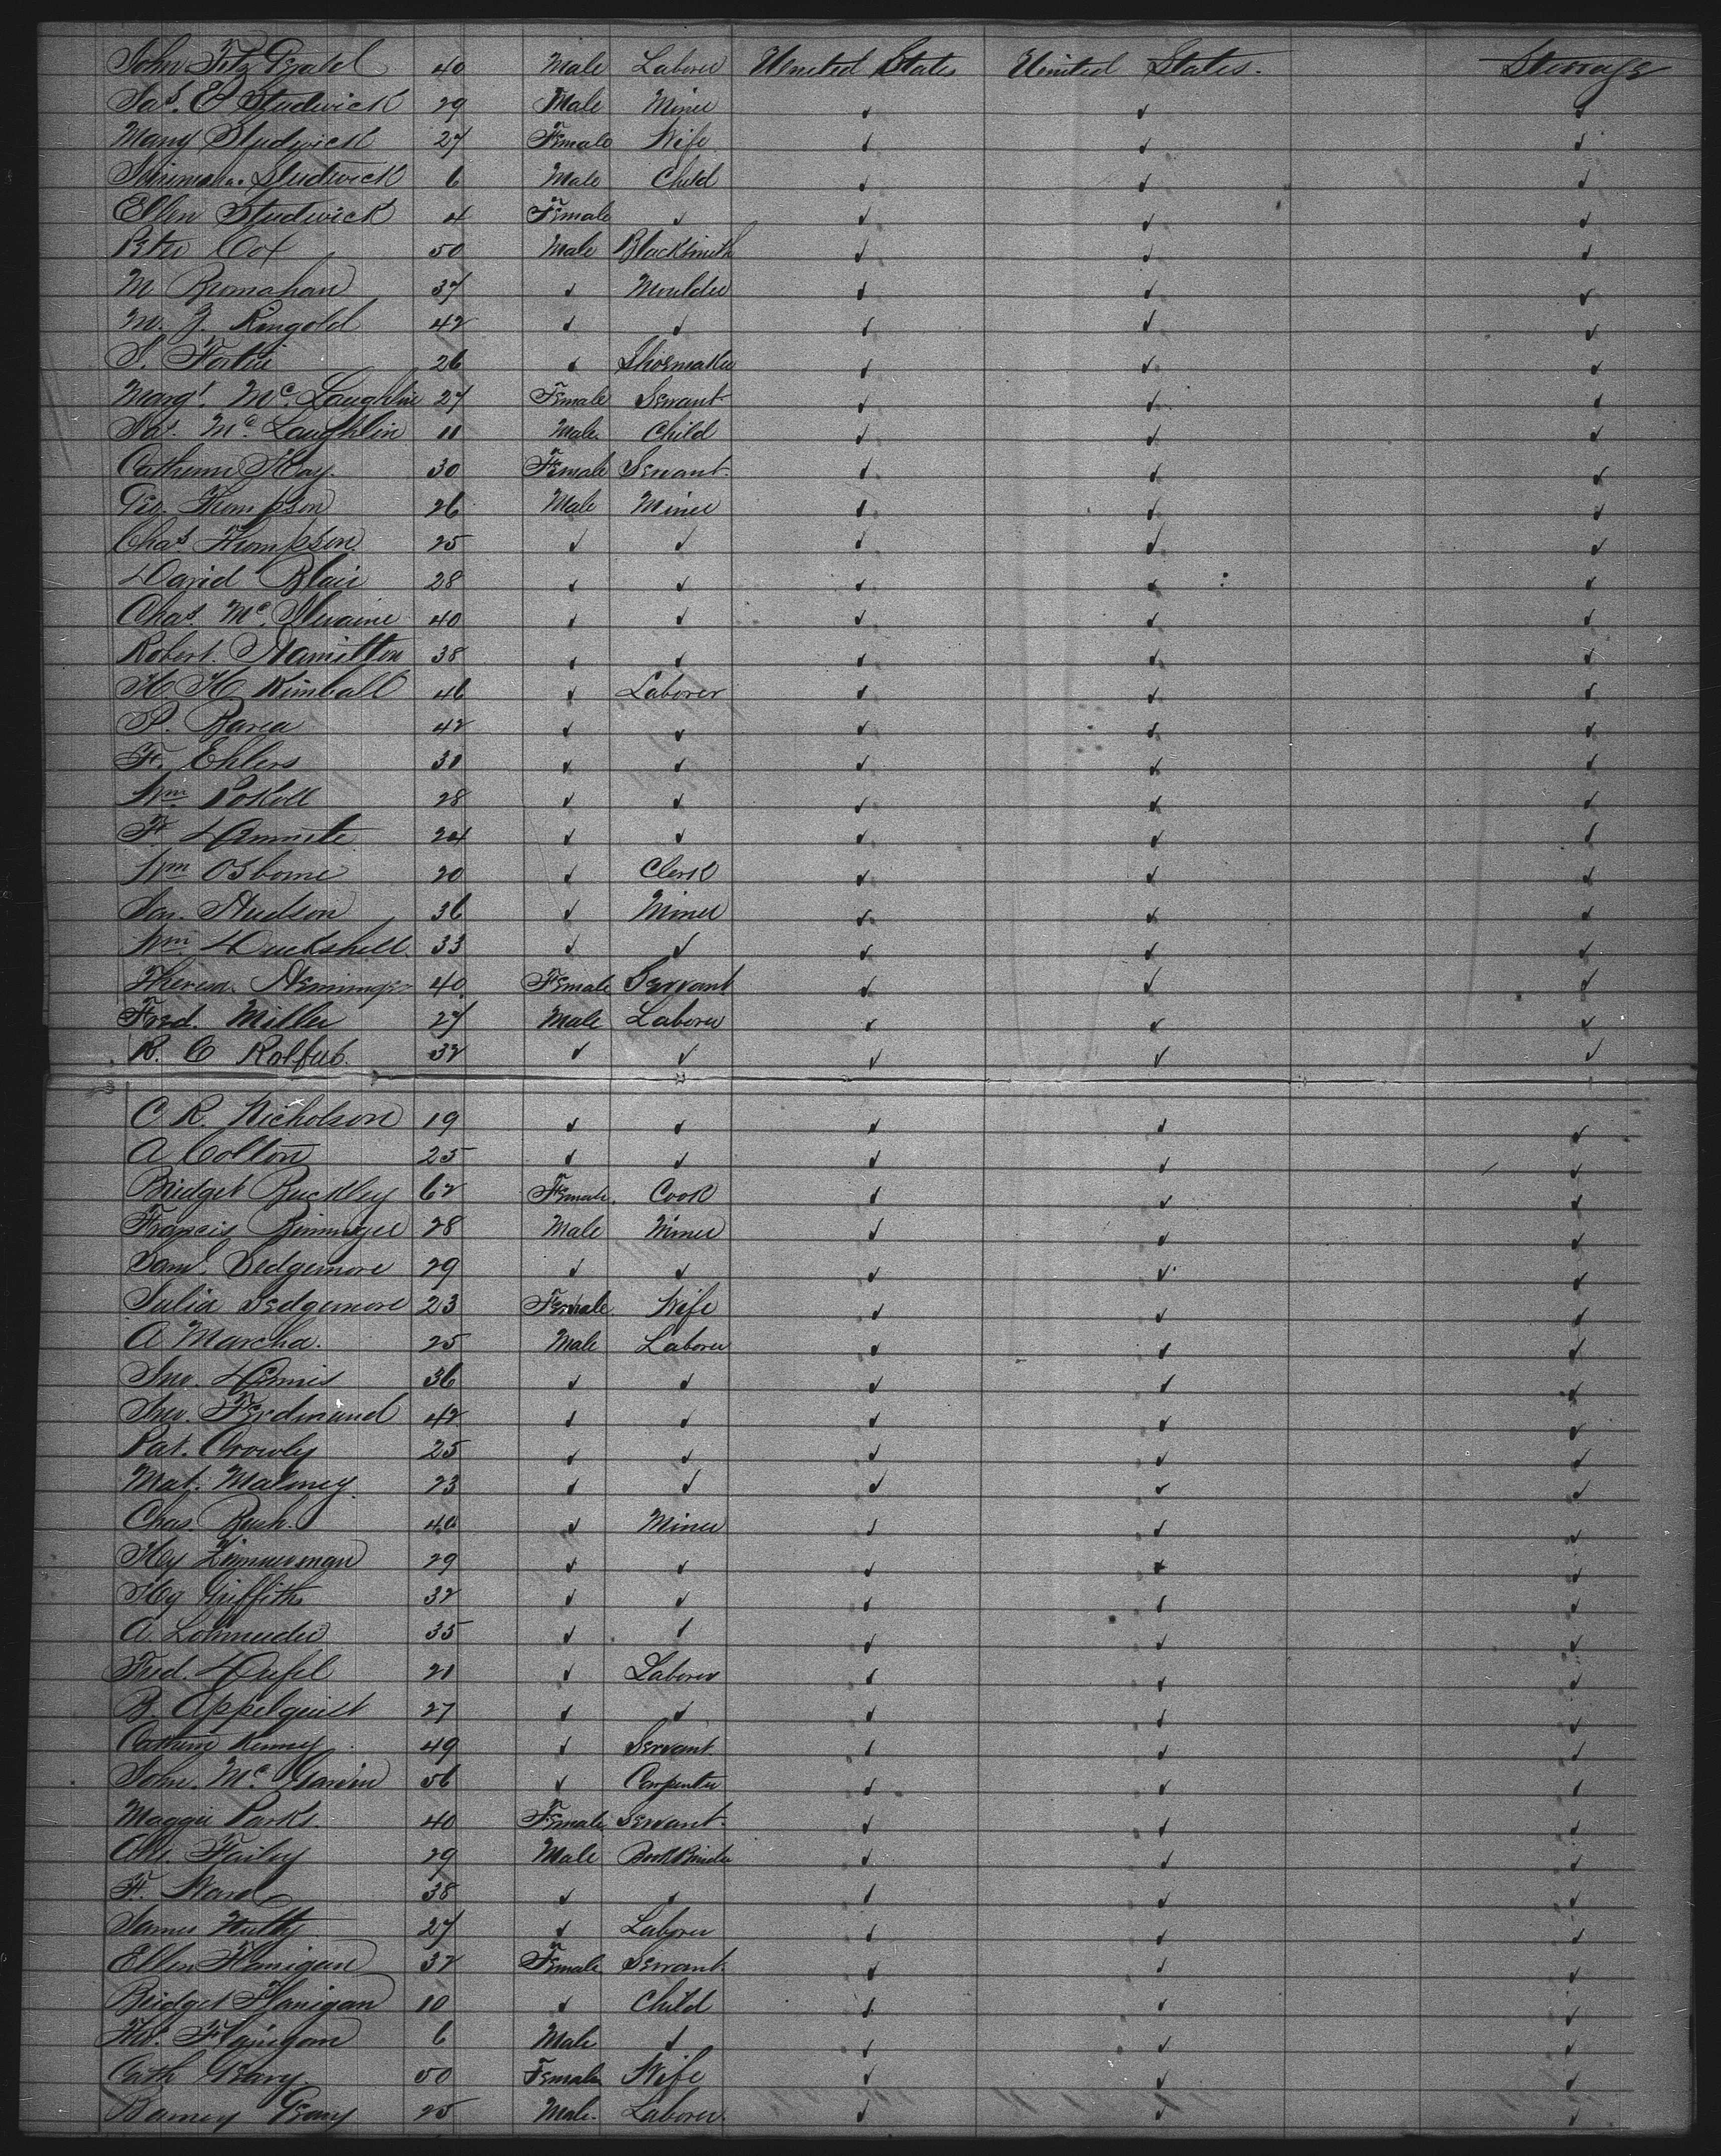 John Fitz Gerald 40 Male Laborer United States United States. Steerage
Jas. E Studwick 29 Male Miner ✓ ✓ ✓
Mary Studwick 27 Female Wife ✓ ✓ ✓
Studwick 6 Male Child ✓ ✓ ✓
Ellen Studwick 4 Female ✓ ✓ ✓ ✓
Peter Cox 50 Male Blacksmith ✓ ✓ ✓
M 37 ✓ Moulder ✓ ✓ ✓
M. J. Ringold 42 ✓ ✓ ✓ ✓ ✓
S. 26 ✓ Shoemaker ✓ ✓ ✓
Margt. Mc. Laughlin 27 Female Servant ✓ ✓ ✓
Jas. Mc. Laughlin 11 Male Child ✓ ✓ ✓
Catherine Hay 30 Female Servant ✓ ✓ ✓
Geo. Thompson 26 Male Miner ✓ ✓ ✓
Chas Thompson 25 ✓ ✓ ✓ ✓ ✓
David Blair 28 ✓ ✓ ✓ ✓ ✓
Chas. Mc. Ilwaine 40 ✓ ✓ ✓ ✓ ✓
Robert Hamilton 38 ✓ ✓ ✓ ✓ ✓
H H Kimball 46 ✓ Laborer ✓ ✓ ✓
P. Barca 42 ✓ ✓ ✓ ✓ ✓
F. Ehlers 31 ✓ ✓ ✓ ✓ ✓
Wm 28 ✓ ✓ ✓ ✓ ✓
F. 24 ✓ ✓ ✓ ✓ ✓
Wm Osborne 20 ✓ Clerk ✓ ✓ ✓
Jas. Hudson 36 ✓ Miner ✓ ✓ ✓
Wm Duckshell 33 ✓ ✓ ✓ ✓ ✓
Theresa 40 Female Servant ✓ ✓ ✓
Fred. Miller 27 Male Laborer ✓ ✓ ✓
R. C 32 ✓ ✓ ✓ ✓ ✓
C R. Nicholson 19 ✓ ✓ ✓ ✓ ✓
A Colton 25 ✓ ✓ ✓ ✓ ✓
Bridget Buckley 62 Female Cook ✓ ✓ ✓
Francis 28 Male Miner ✓ ✓ ✓
Saml. Sedgemore 29 ✓ ✓ ✓ ✓ ✓
Julia Sedgemore 23 Female Wife ✓ ✓ ✓
A Marcha. 25 Male Laborer ✓ ✓ ✓
Jno. Dennis 36 ✓ ✓ ✓ ✓ ✓
Jno. Ferdinand 42 ✓ ✓ ✓ ✓ ✓
Pat. Crowly 25 ✓ ✓ ✓ ✓ ✓
Mat. Maloney 23 ✓ ✓ ✓ ✓ ✓
Chas. Bush. 40 ✓ Miner ✓ ✓ ✓
Hy Zimmerman 29 ✓ ✓ ✓ ✓ ✓
Hy Griffith 32 ✓ ✓ ✓ ✓ ✓
A. 35 ✓ ✓ ✓ ✓ ✓
Fred. 21 ✓ Laborer ✓ ✓ ✓
B. Appelquist 27 ✓ ✓ ✓ ✓ ✓
Catherine Kenney 49 ✓ Servant ✓ ✓ ✓
John. Mc. Garvin 56 ✓ Carpenter ✓ ✓ ✓
Maggie Parks. 40 Female Servant ✓ ✓ ✓
Failey 29 Male Book Binder ✓ ✓ ✓
F. Ward 38 ✓ ✓ ✓ ✓ ✓
James 27 ✓ Laborer ✓ ✓ ✓
Ellen Flanigan 32 Female Servant ✓ ✓ ✓
Bridget Flanigan 10 ✓ Child ✓ ✓ ✓
Ths. Flanigan 6 Male ✓ ✓ ✓ ✓
Cath Geary 50 Female Wife ✓ ✓ ✓
Barney Geary 25 Male. Laborer. ✓ ✓ ✓